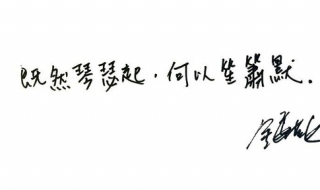 既然琴瑟起，何以笙箫默.